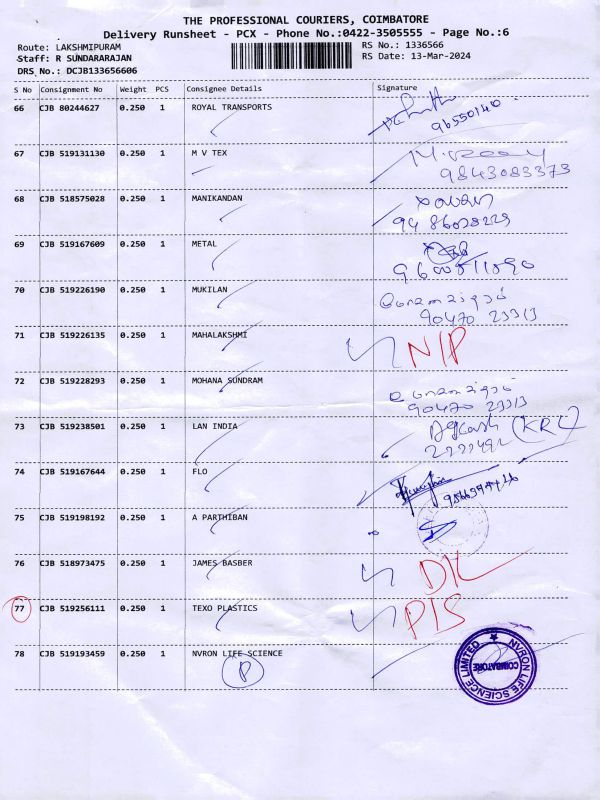 THE PROFESSIONAL COURIERS, COIMBATORE
Delivery Runsheet - PCX - Phone No.:0422-3505555 - Page No.:6
Route: LAKSHMIPURAM RS No.: 1336566
Staff: R SUNDARARAJAN RS Date: 13-Mar-2024
DRS No.: DCJB133656606
S No Consignment No Weight PCS Consignee Details Signature
66 CJB 80244627 0.250 1 ROYAL TRANSPORTS
96550140
67 CJB 519131130 0.250 1 M V TEX
9843083373
68 CJB 518575028 0.250 1 MANIKANDAN
9486028229
69 CJB 519167609 0.250 1 METAL
70 CJB 519226190 0.250 1 MUKILAN
90470 23313
71 CJB 519226135 0.250 1 MAHALAKSHMI
N/P
72 CJB 519228293 0.250 1 MOHANA SUNDRAM
90470 23313
73 CJB 519238501 0.250 1 LAN INDIA
(KRL)
74 CJB 519167644 0.250 1 FLO
75 CJB 519198192 0.250 1 A PARTHIBAN
76 CJB 518973475 0.250 1 JAMES BASBER
D/L
77 CJB 519256111 0.250 1 TEXO PLASTICS
P/S
78 CJB 519193459 0.250 1 NVRON LIFE SCIENCE
P
NVRON LIFE SCIENCE LIMITED
COIMBATORE